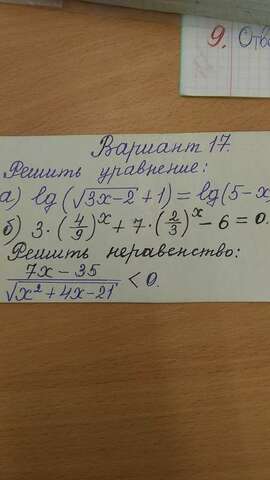 9. Отв
Вариант 17.
Решить уравнение:
а) lg(√3x-2 + 1) = lg(5-x
б) 3·(4/9)^x + 7·(2/3)^x - 6 = 0.
Решить неравенство:
7x - 35 / √x² + 4x - 21 < 0.